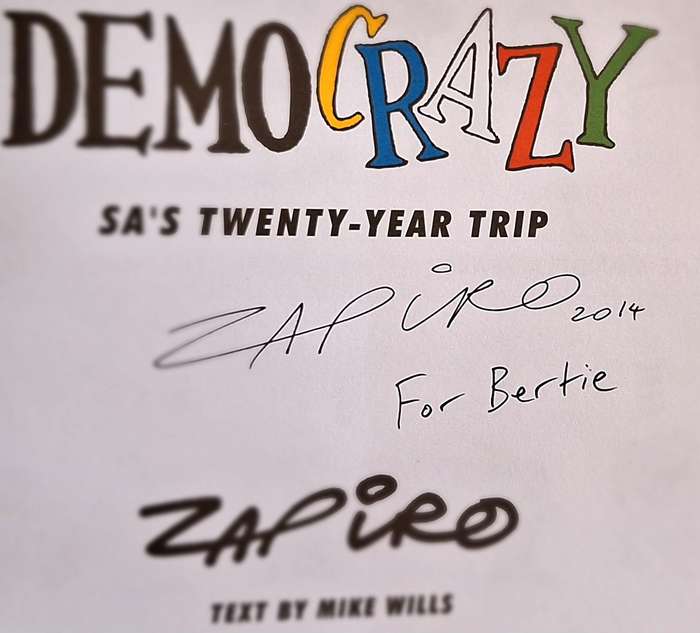 DEMOCRAZY
SA'S TWENTY-YEAR TRIP
ZAPIRO 2014
For Bertie
ZAPIRO
TEXT BY MIKE WILLS